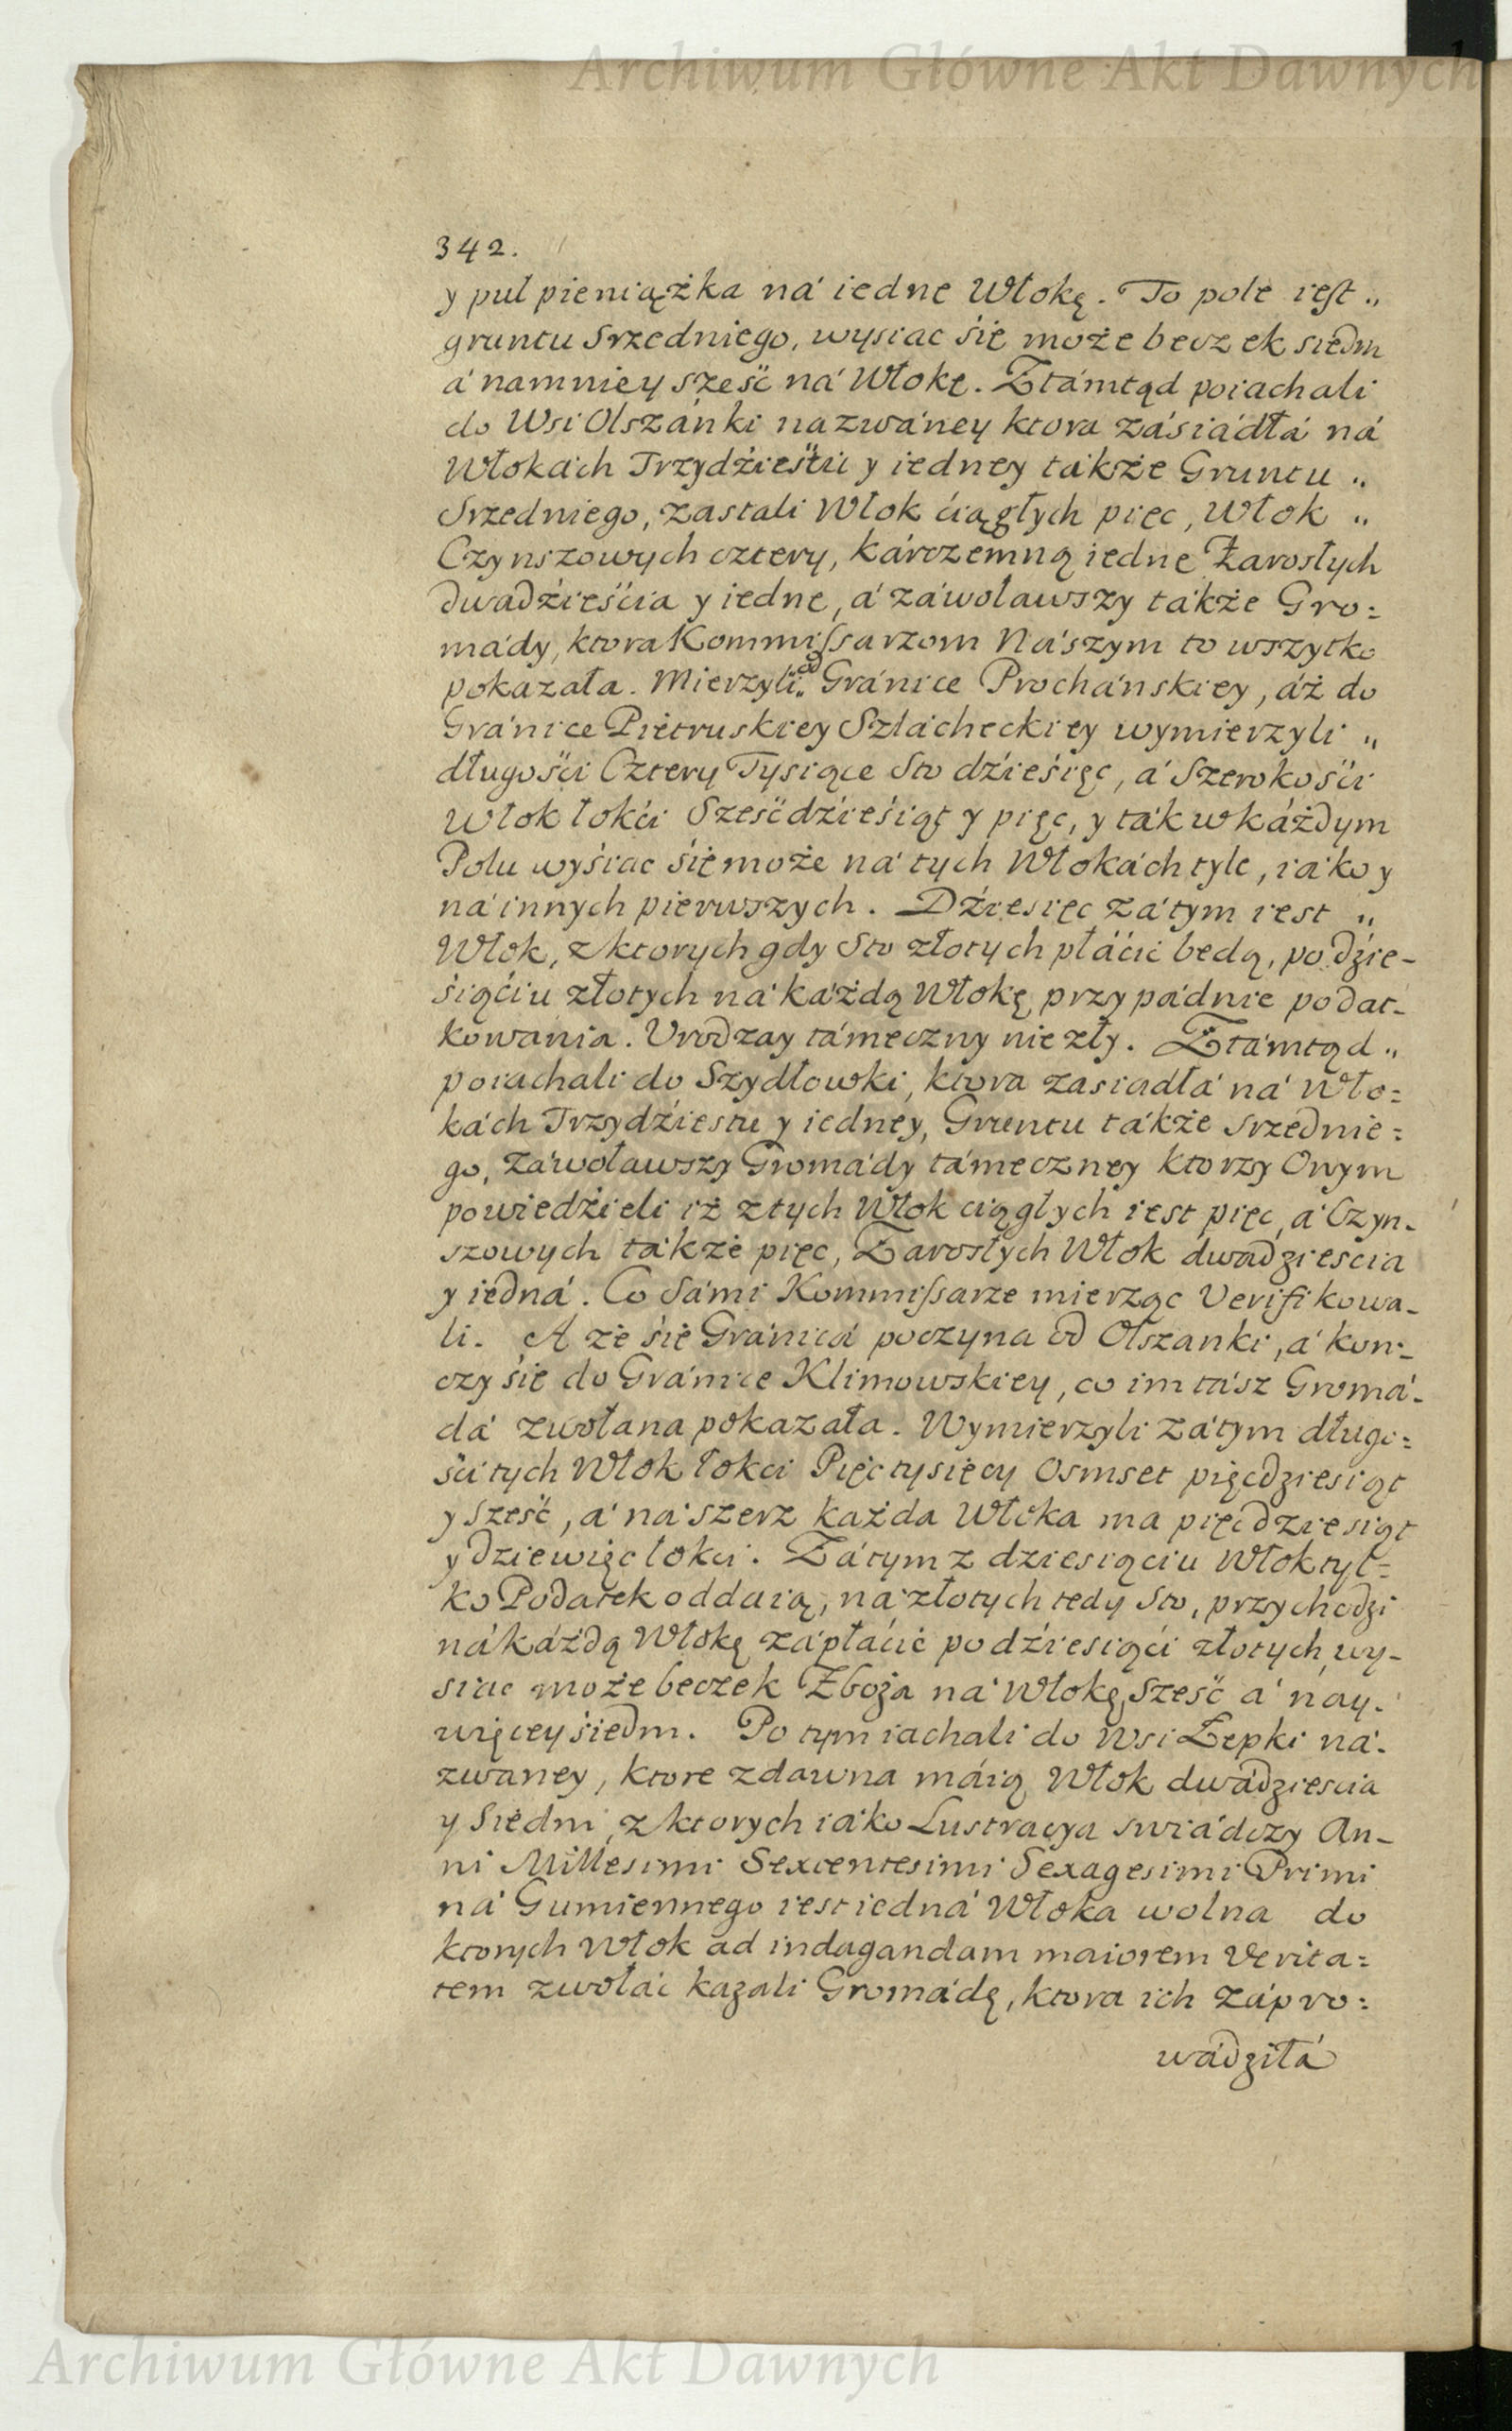 Archiwum Główne Akt Dawnych
342.
y puł pieniążka ná iedne Włokę. To pole iest „
gruntu Srzedniego, wysiac się może beczek siedm
á namniey sześć ná Włokę. Ztámtąd poiachali
do Wsi Olszánki nazwáney ktora zásiádłá ná
Włokách Trzydźiestu y iedney tákże Gruntu „
Srzedniego, zastali Włok ćiągłych pięc, Włok „
Czynszowych cztery, kárczemną iedne Zarosłych
dwadźieśćia y iedne, á záwoławszy tákże Gro=
mády, ktora Kommissarzom Nászym to wszytko
pokazała. Mierzyli od Gránice Prochánskiey, áż do
Gránice Pietruskiey Szlácheckiey wymierzyli „
długośći Cztery Tysiące Sto dźieśięc, á Szerokośći
Włok łokći Sześćdźieśiąt y pięc, y ták w káżdym
Polu wyśiac się może ná tych Włokách tyle, iáko y
ná innych pierwszych. Dźiesięc zátym iest „
Włok, z ktorych gdy Sto złotych płáćic bedą, po dzie-
śiąćiu złotych ná káżdą Włokę przypádnie podat-
kowania. Urodzay támeczny niezły. Ztámtąd „
poiachali do Szydłowki, ktora zasiadłá ná Wło=
kách Trzydźiestu y iedney, Gruntu tákże Srzednie=
go, záwoławszy Gromády támeczney ktorzy Onym
powiedźieli iż z tych Włok ciągłych iest pięc, á Czyn-
szowych tákże pięc, Zarosłych Włok dwadziescia
y iedná. Co Sámi Kommissarze mierząc Verifikowa-
li. A że się Gránicá poczyna od Olszanki, á kon-
czy się do Gránice Klimowskiey, co im tász Gromá-
dá zwołana pokazała. Wymierzyli zátym długo=
śći tych Włok łokci Pięc tysięcy Osmset pięcdziesiąt
y Sześć, á ná szerz każda Włoka ma pięcdziesiąt
y dziewięc łokci. Zátym z dziesiąciu Włok tyl=
ko Podatek oddaią, ná złotych tedy Sto, przychodzi
ná káżdą Włokę zápłácić po dźiesiąći złotych, wy-
siac może beczek Zboża ná Włokę, Sześć á nay-
więcey śiedm. Po tym iachali do Wsi Łepki ná-
zwaney, ktore zdawna máią Włok dwádziescia
y Siedm, z ktorych iáko Lustracya swiádczy An-
ni Millesimi Sexcentesimi Sexagesimi Primi
ná Gumiennego iest iedná Włoka wolna do
ktorych Włok ad indagandam maiorem Verita=
tem zwołác kazali Gromádę, ktora ich zápro=
wádziłá
Archiwum Główne Akt Dawnych